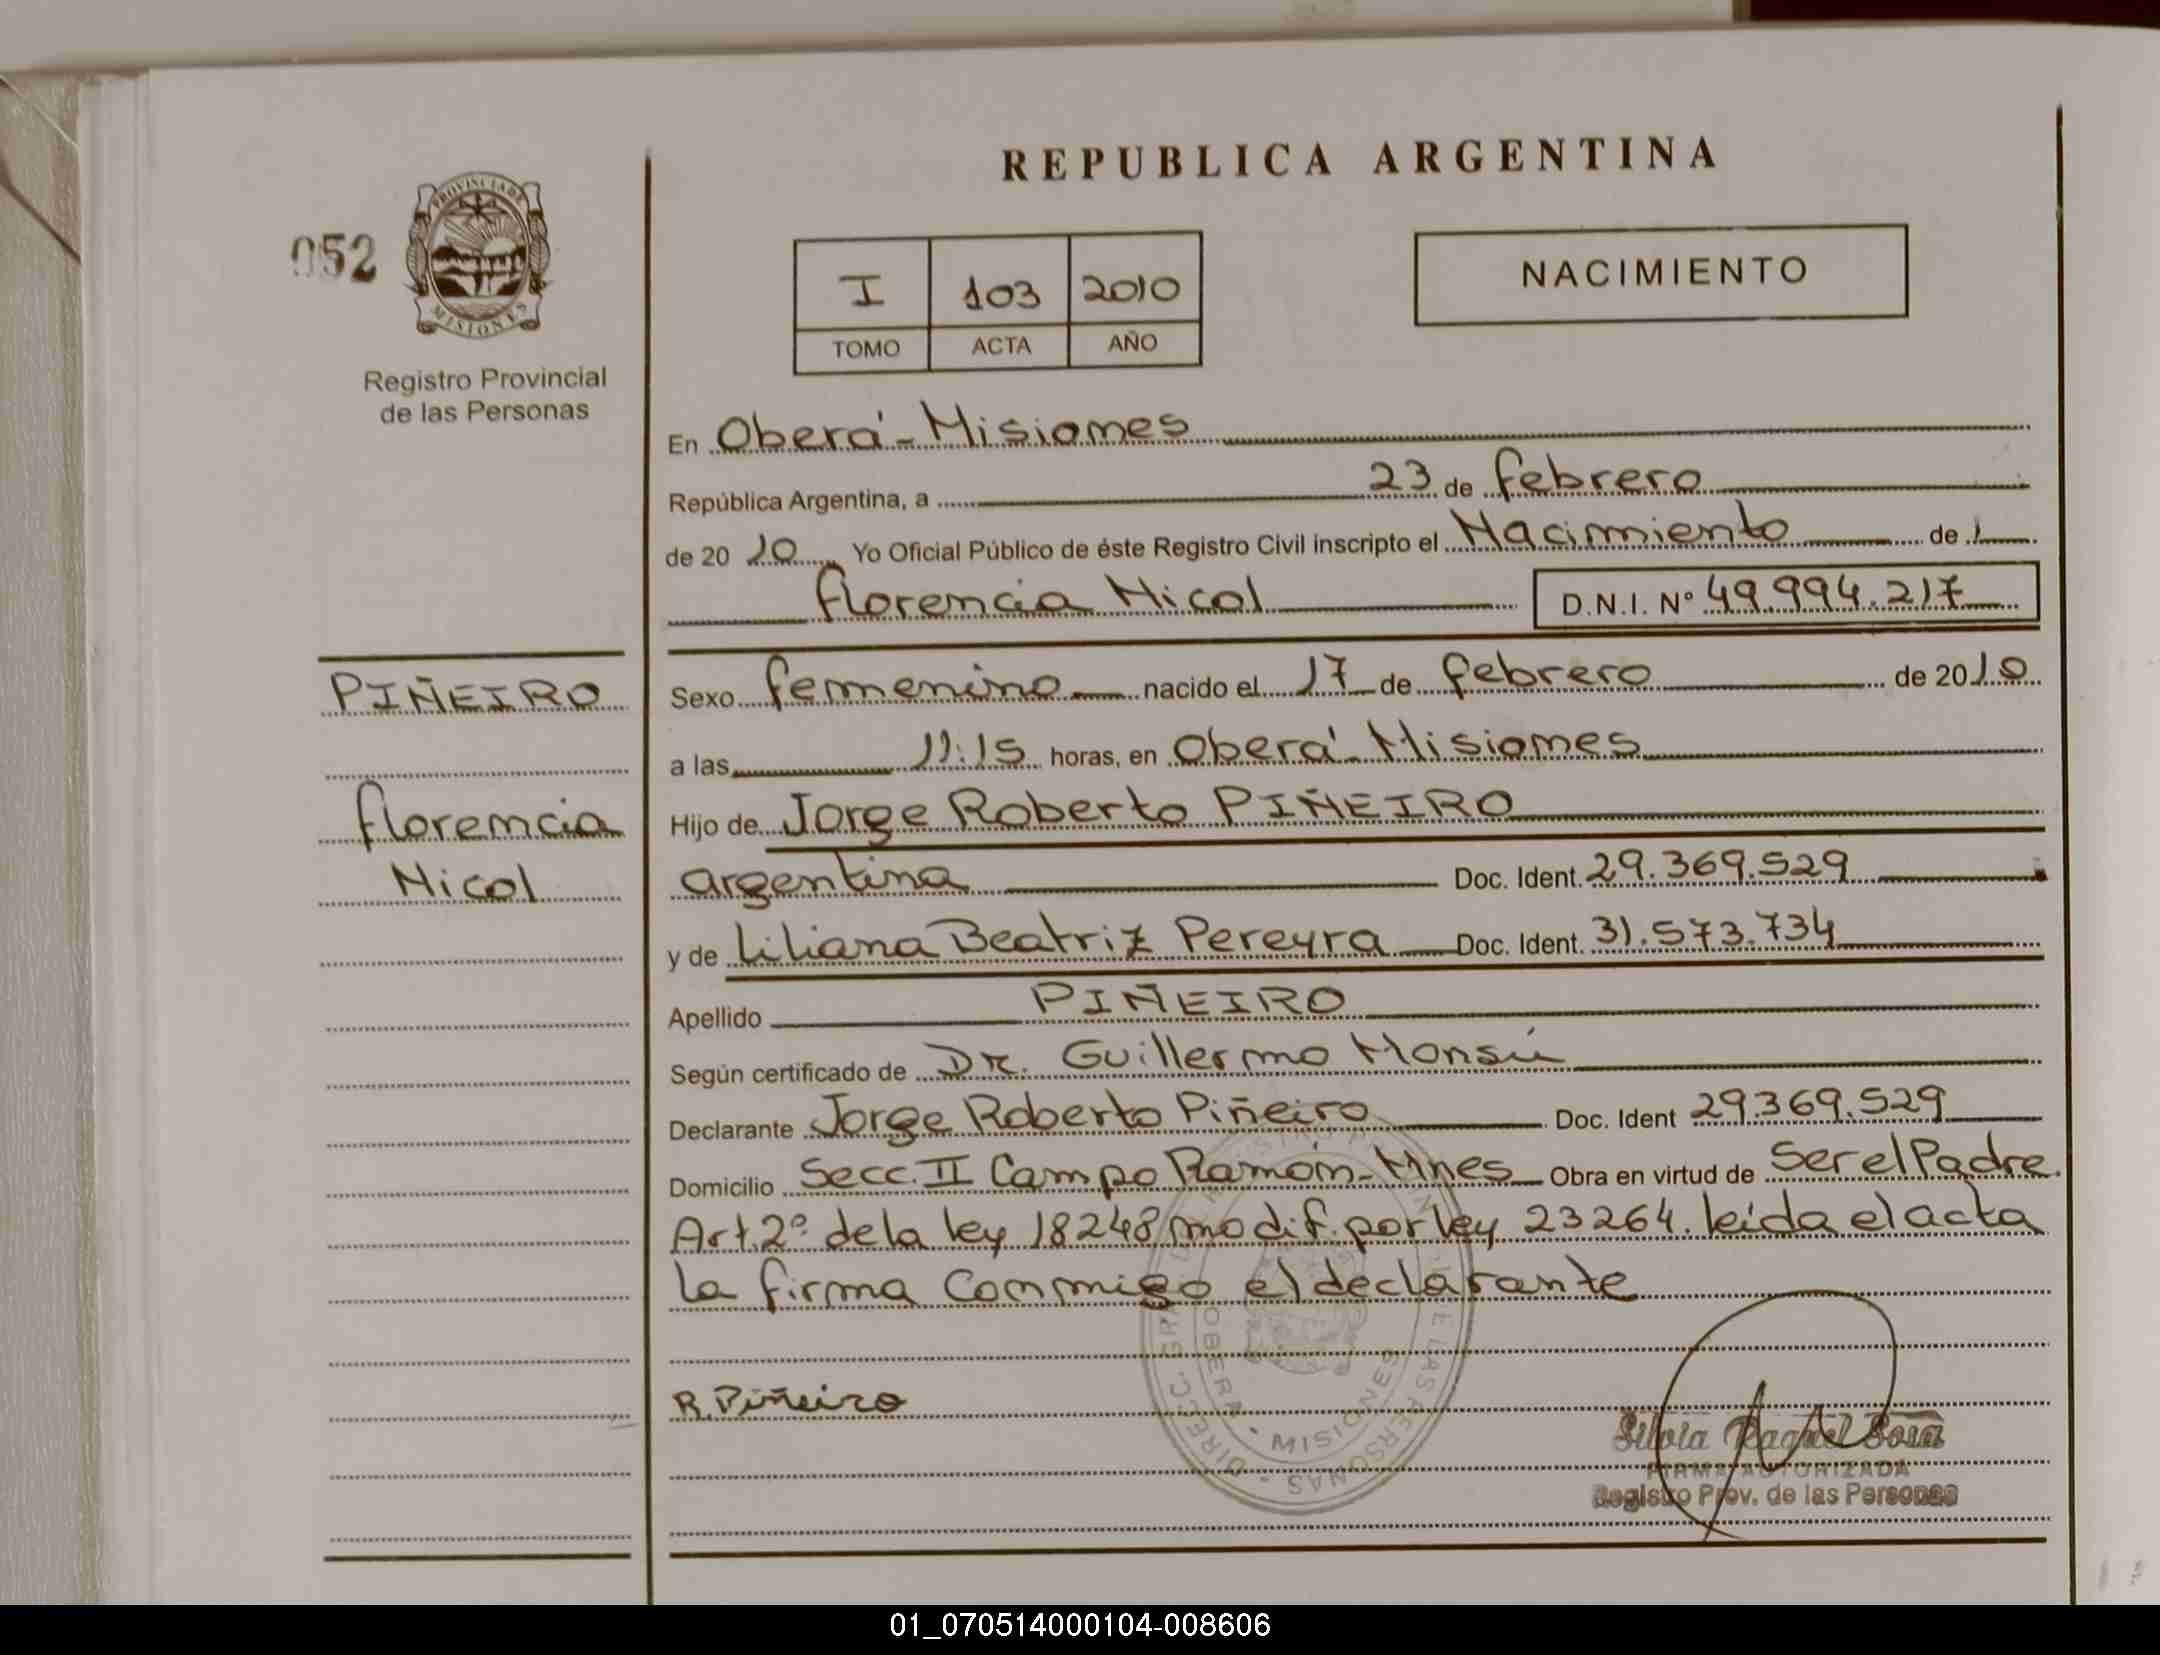 REPUBLICA ARGENTINA
052
PROVINCIA DE
MISIONES
Registro Provincial
de las Personas
I 103 2010
TOMO ACTA AÑO
NACIMIENTO
En Oberá - Misiones
República Argentina, a 23 de febrero
de 20 10 Yo Oficial Público de éste Registro Civil inscripto el Nacimiento de 1
Florencia Nicol D.N.I. Nº 49.994.217
PIÑEIRO
Florencia
Nicol
Sexo femenino nacido el 17 de febrero de 2010
a las 11:15 horas, en Oberá - Misiones
Hijo de Jorge Roberto PIÑEIRO
argentina Doc. Ident. 29.369.529
y de Liliana Beatriz Pereyra Doc. Ident. 31.573.734
Apellido PIÑEIRO
Según certificado de Dr. Guillermo Monsú
Declarante Jorge Roberto Piñeiro Doc. Ident 29.369.529
Domicilio Secc. II Campo Ramón - Mnes Obra en virtud de Ser el Padre.
Art. 2º de la ley 18248 modif. por ley 23264. leida el acta
la firma conmigo el declarante
R. Piñeiro
OBERA - MISIONES
DE LAS PERSONAS - DIRECC. GRAL.
Silvia Raquel Sosa
FIRMA AUTORIZADA
Registro Prov. de las Personas
01_070514000104-008606